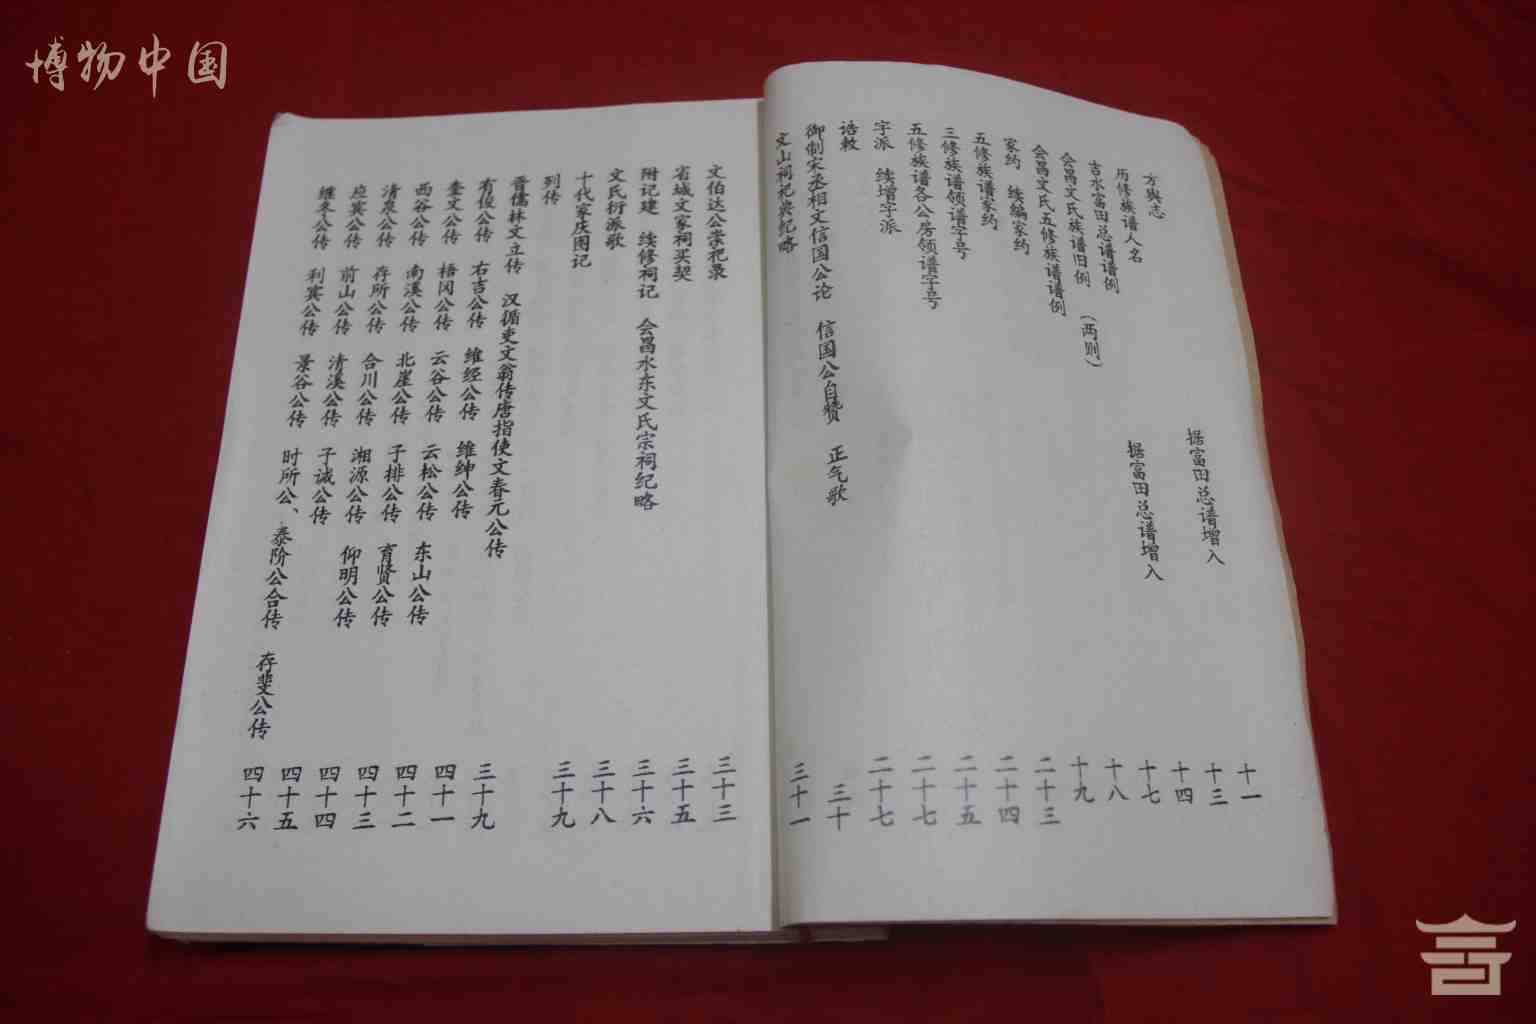 博物中国
方舆志
十一
历修族谱人名 据富田总谱增入
十三
吉水富田总谱谱例 据富田总谱增入
十四
会昌文氏族谱旧例 （两则）
十七
会昌文氏五修族谱谱例
十八
家约 续编家约
十九
五修族谱家约
二十三
三修族谱领谱字号
二十四
五修族谱各公房领谱字号
二十五
字派 续增字派
二十七
诰敕
二十七
御制宋丞相文信国公论 信国公自赞 正气歌
三十
文山祠祀典纪略
三十一
文伯达公崇祀录
三十三
省城文家祠买契
三十五
附记建 续修祠记 会昌水东文氏宗祠纪略
三十六
文氏衍派歌
三十八
十代家庆图记
三十九
列传
晋儒林文立传 汉循吏文翁传唐指使文春元公传
三十九
有俊公传 右吉公传 维经公传 维绅公传
四十一
奎文公传 梧冈公传 云谷公传 云松公传 东山公传
四十二
西谷公传 南溪公传 北崖公传 子排公传 育贤公传
四十三
清泉公传 存所公传 合川公传 湘源公传 仰明公传
四十四
应宾公传 前山公传 清溪公传 子诚公传
四十五
维冬公传 利宾公传 景谷公传 时所公、泰阶公合传 存斐公传
四十六